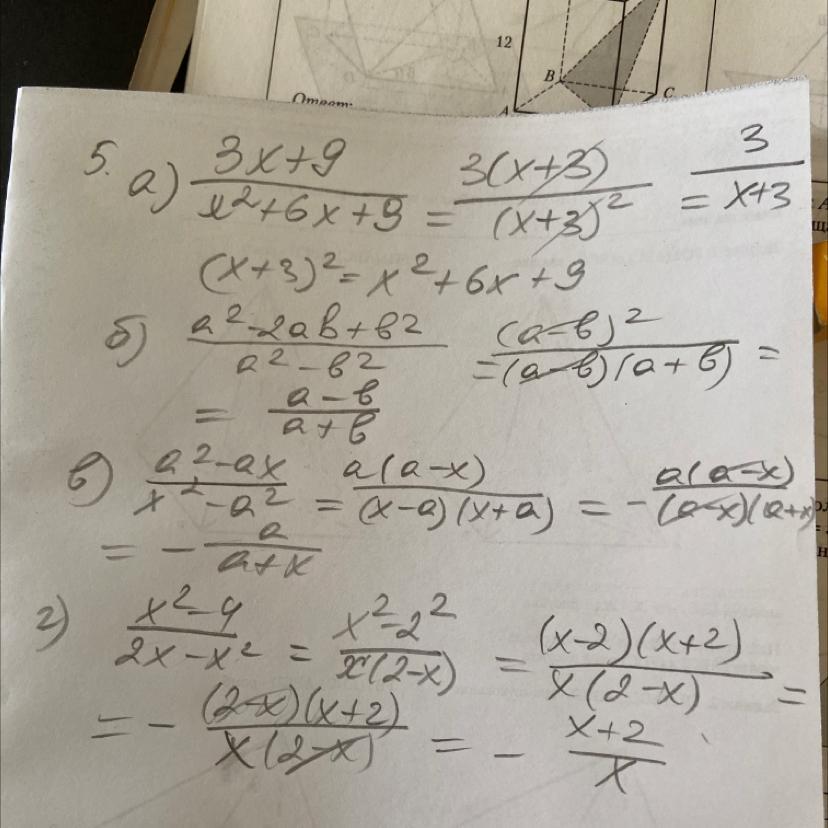 12
B
C
A
Ответ:
5. а) (3x+9)/(x²+6x+9) = 3(x+3)/(x+3)² = 3/(x+3)
(x+3)² = x²+6x+9
б) (a²-2ab+b²)/(a²-b²) = (a-b)²/(a-b)(a+b) =
= (a-b)/(a+b)
в) (a²-ax)/(x²-a²) = a(a-x)/(x-a)(x+a) = - a(a-x)/(a-x)(a+x)
= - a/(a+x)
г) (x²-4)/(2x-x²) = (x²-2²)/x(2-x) = (x-2)(x+2)/x(2-x) =
= - (2-x)(x+2)/x(2-x) = - (x+2)/x